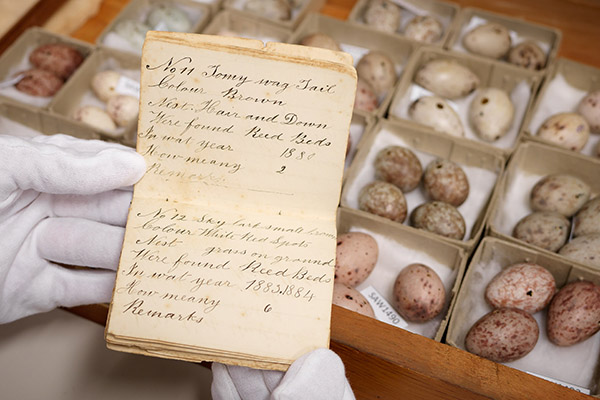 No 11 Tomy wag Tail
Colour Brown
Nist. Hair and Down
Were found Reed Beds
In wat year 188
How meany 2
Remarks
No 12 Sky Lark small brown
Colour White Red Spots
Nist grass on ground
Were found Reed Beds
In wat year 1883.1884
How meany 6
Remarks
SAW1490